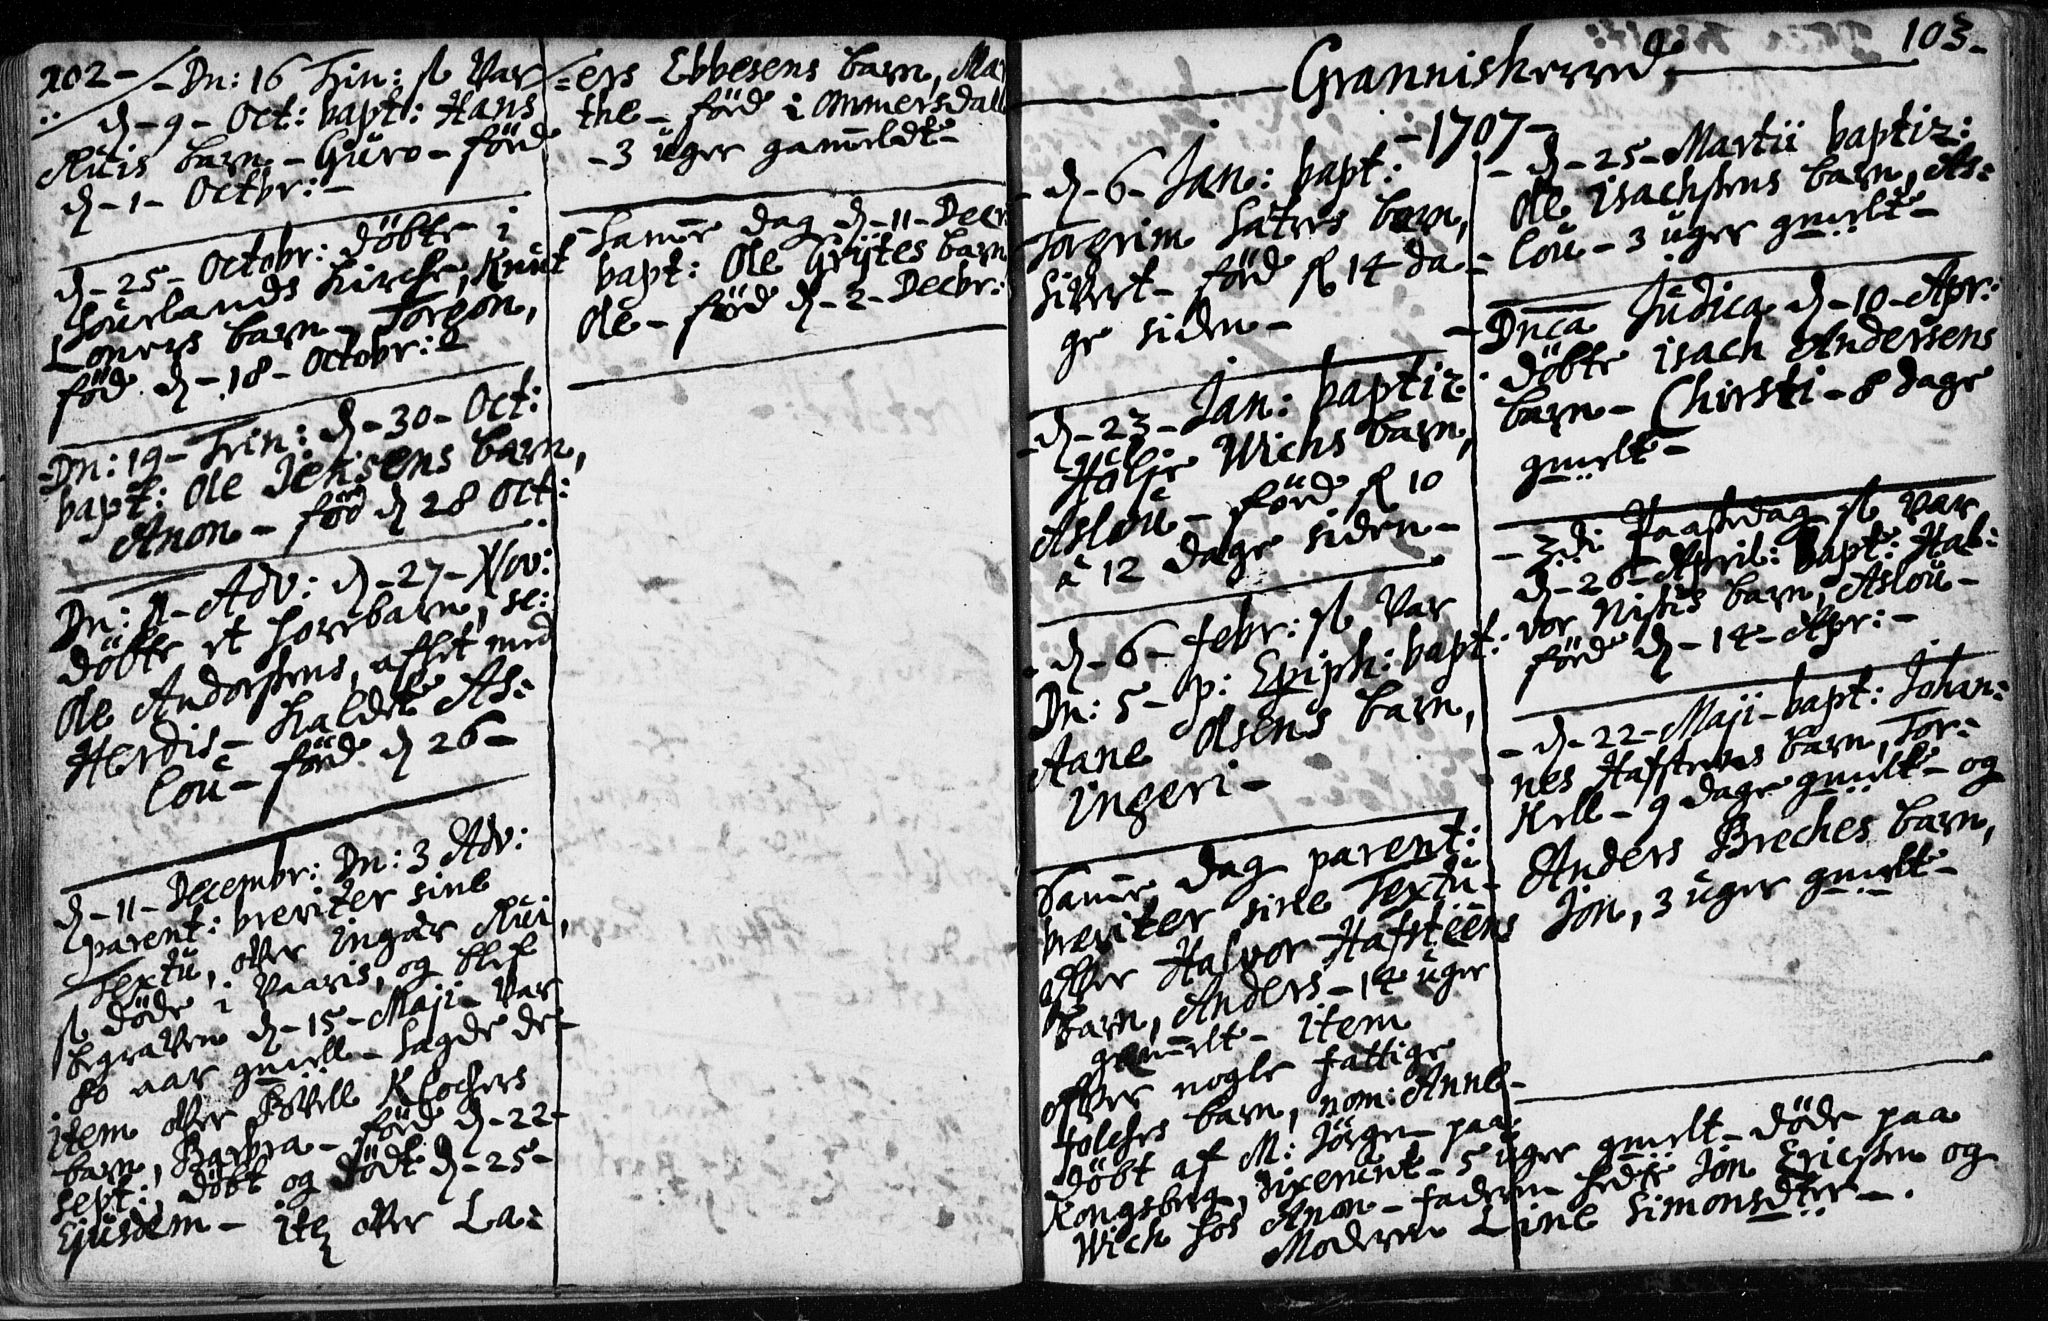 102 - Dn: 16 Trin: sl Var
d - 9 - Oct: bapt: Hans
Ruis barn - Guro - förd
d - 1 - Octbr: -
d - 25 - Octobr: döbte i
Hourlands Kirche, Knut
Loners barn - Torgon,
föd d - 18 - Octobr:
Dn: 19 - Trin: d - 30 - Oct:
bapt: Ole Jensens barn,
Anon - förd d 28 Oct:
Dn: 1 - Adv: d - 27 - Nov:
döbte et horebarn, sc:
Ole Anderstens, aflet med
Herdis - Kaldet As=
lou - förd d 26 -
d - 11 - Decembr: Dn: 3 Adv:
parent: breviter sine
Textu, over Ingar Rui,
sl döde i Vaaris, og blef
begraven d - 15 - Maji - Var
80 aar gmell - Sagde de -
item over Povell Klochers
barn, Barbra - förd d - 22 -
Sept:, döbt og dödt d - 25 -
Ejusdem - ite over La=
=ers Ebbesens barn, Mar
the - förd i Ommersdall
- 3 uger gammeldt -
- Samme dag d - 11 - Decr
bapt: Ole Grytes barn
Ole - förd d - 2 - Decbr:
Granniskerred, 103 -
- 1707 -
- d - 6 - Jan: bapt:
Torgrim Satres barn,
Sivert - förd sl 14 da=
ge siden -
- d - 23 - Jan: baptiz:
Holje Wichs barn,
Aslou - förd sl 10
a 12 dage siden -
- d - 6 - Febr: sl Var
Dn: 5 - p: Epiph: bapt:
Aane Olsens barn,
Ingeri -
Samme dag parent:
breviter sine Textu -
offver Halvor Hafsteens
barn, Anders - 14 uger
gammelt - item
offver nogle fattige
folches barn, nom: Anne -
döbt af M: Jörgen paa
Kongsberg, dixerunt - 5 uger gmelt - döde paa
Wich hos Anon - faderen hedte Jon Ericsten og
Moderen Line Simonsdter -.
- d - 25 - Martii baptiz:
Ole Isachstens barn, As=
lou - 3 uger gmelt -
- Dnca Judica d - 10 - Apr:
döbte Isach Andersens
barn - Chirsti - 8 dage
gmelt -
- 3die Paaschedag sl Var
d - 26 - April: bapt: Hal=
vor Nisi&s barn, Aslou -
förd d - 14 - Apr: -
- d - 22 - Maji - bapt: Johan=
nes Hafstens barn, Tor=
kell - 9 dage gmelt - og
Anders Breches barn,
Jon, 3 uger gmelt -